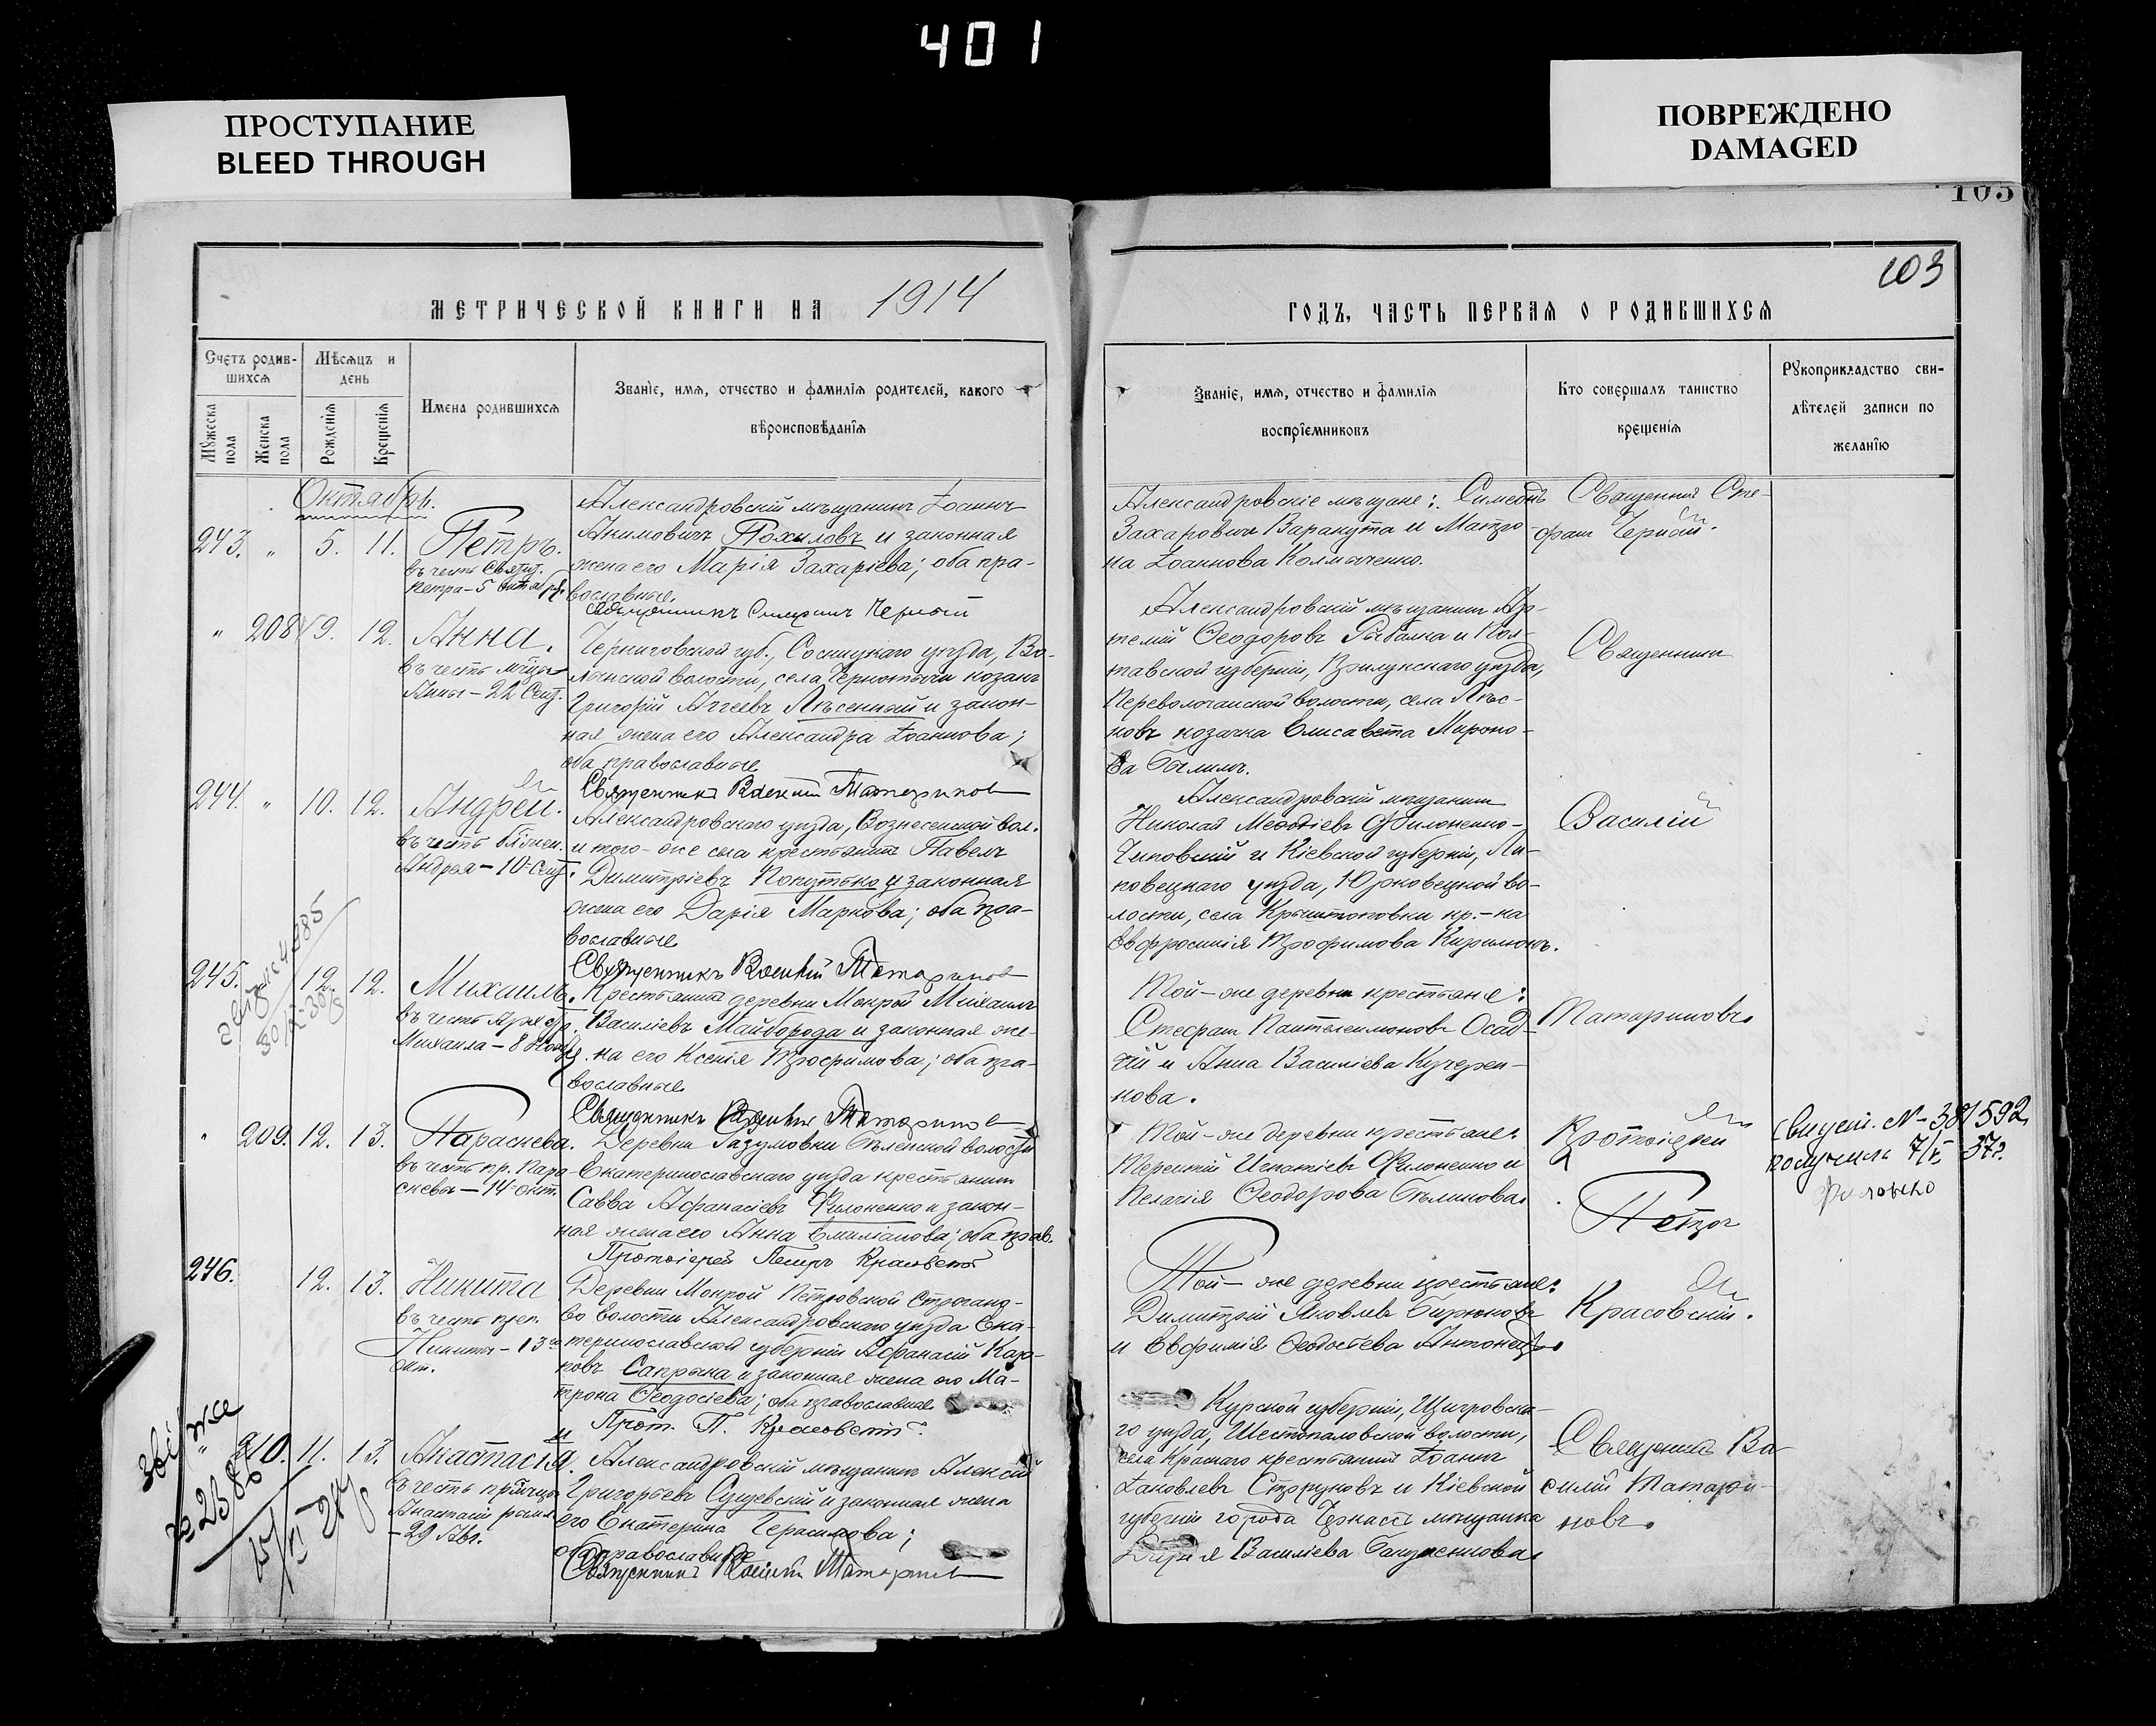 401
ПРОСТУПАНИЕ
BLEED THROUGH
ПОВРЕЖДЕНО
DAMAGED
103
103
МЕТРИЧЕСКОЙ КНИГИ НА 1914
ГОДЪ, ЧАСТЬ ПЕРВАЯ О РОДИВШИХСЯ
Счетъ родив-
шихся
Мужеска
пола
Женска
пола
Мѣсяцъ и
день
Рожденія
Крещенія
Имена родившихся
Званіе, имя, отчество и фамилія родителей, какого
вѣроисповѣданія
Званіе, имя, отчество и фамилія
воспріемниковъ
Кто совершалъ таинство
крещенія
Рукоприкладство сви-
дѣтелей записи по
желанію
Октябрь.
243. " 5. 11. Петръ.
въ честь Святит.
Петра - 5 Октября
Александровскій мѣщанинъ Іоаннъ
Акимовичъ Похиловъ и законная
жена его Марія Захаріева; оба пра-
вославные.
Священникъ Черный
Александровскіе мѣщане: Симеонъ
Захаровичъ Варакута и Матро-
на Іоаннова Колмыченко.
Священникъ Сте-
фанъ Черный.
" 208 9. 12. Анна.
въ честь мчцы
Анны - 22 Сент.
Черниговской губ., Сосницкаго уѣзда, Во-
лынской волости, села Чернотычи козакъ
Григорій Аггеевъ Лѣсенный и закон-
ная жена его Александра Іоаннова;
оба православные
Священникъ Василій Татариновъ
Александровскій мѣщанинъ Ар-
темій Ѳеодоровъ Рыбалка и Пол-
тавской губерніи, Прилукскаго уѣзда,
Переволочанской волости, села Лѣс-
ковъ козачка Елисавета Мироно-
ва Былимъ.
Священникъ
244. " 10. 12. Андрей.
въ честь блжен.
Андрея - 10 Сент.
Александровскаго уѣзда, Вознесенской вол.
и того-же села крестьянинъ Павелъ
Димитріевъ Кокутько и законная
жена его Дарія Маркова; оба пра-
вославные
Священникъ Василій Татариновъ
Александровскій мѣщанинъ
Николай Меѳодіевъ Филоненко-
и Кіевской губерніи, Ли-
повецкаго уѣзда, Юрковецкой во-
лости, села Крыштоповки кр.-ка
Евфросинія Трофимова
Василій
245. 12. 12. Михаилъ.
въ честь
Михаила - 8 Нояб.
Крестьянинъ деревни Мокрой Михаилъ
Василіевъ Майборода и законная же-
на его Ксенія Трофимова; оба пра-
вославные
Священникъ Василій Татариновъ
Той-же деревни крестьяне:
Стефанъ Пантелеимоновъ Осад-
чій и Анна Василіева Кучерен-
кова.
Татариновъ.
" 209. 12. 13. Параскева.
въ честь пр. Пара-
скевы - 14 окт.
Деревни Разумовки Бѣленской волости
Екатеринославскаго уѣзда крестьянинъ
Савва Аѳанасіевъ Филоненко и закон-
ная жена его Анна Емиліанова; оба прав.
Протоіерей Петръ Красовскій
Той-же деревни крестьяне:
Терентій Игнатіевъ Филоненко и
Пелагія Ѳеодорова Бѣликова.
Протоіерей
Петръ
№ 381592
получила 7/ 37г.
246. 12. 13. Никита
въ честь преп.
Никиты - 13го
окт.
Деревни Мокрой Петровской Строгано-
во волости Александровскаго уѣзда Ека-
теринославской губерніи Аѳанасій Кар-
повъ Сапрыка и законная жена его Ма-
трона Ѳеодосіева; оба православные
Прот. П. Красовскій.
Той-же деревни крестьяне:
Димитрій Яковлевъ Бирюковъ
и Евфимія Ѳеодосіева
Красовскій.
" 210. 11. 13. Анастасія.
въ честь
Анастасіи римл.
- 29 Окт.
Александровскій мѣщанинъ Алексій
Григорьевъ Сущевскій и законная жена
его Екатерина Герасимова;
оба православные
Священникъ Василій Татариновъ
Курской губерніи, Щигровска-
го уѣзда, Шестопаловской волости,
села Краснаго крестьянинъ Іоаннъ
Іаковлевъ и Кіевской
губерніи города Черкассъ мѣщанка
Дарія Василіева
Священникъ Ва-
силій Татари-
новъ.